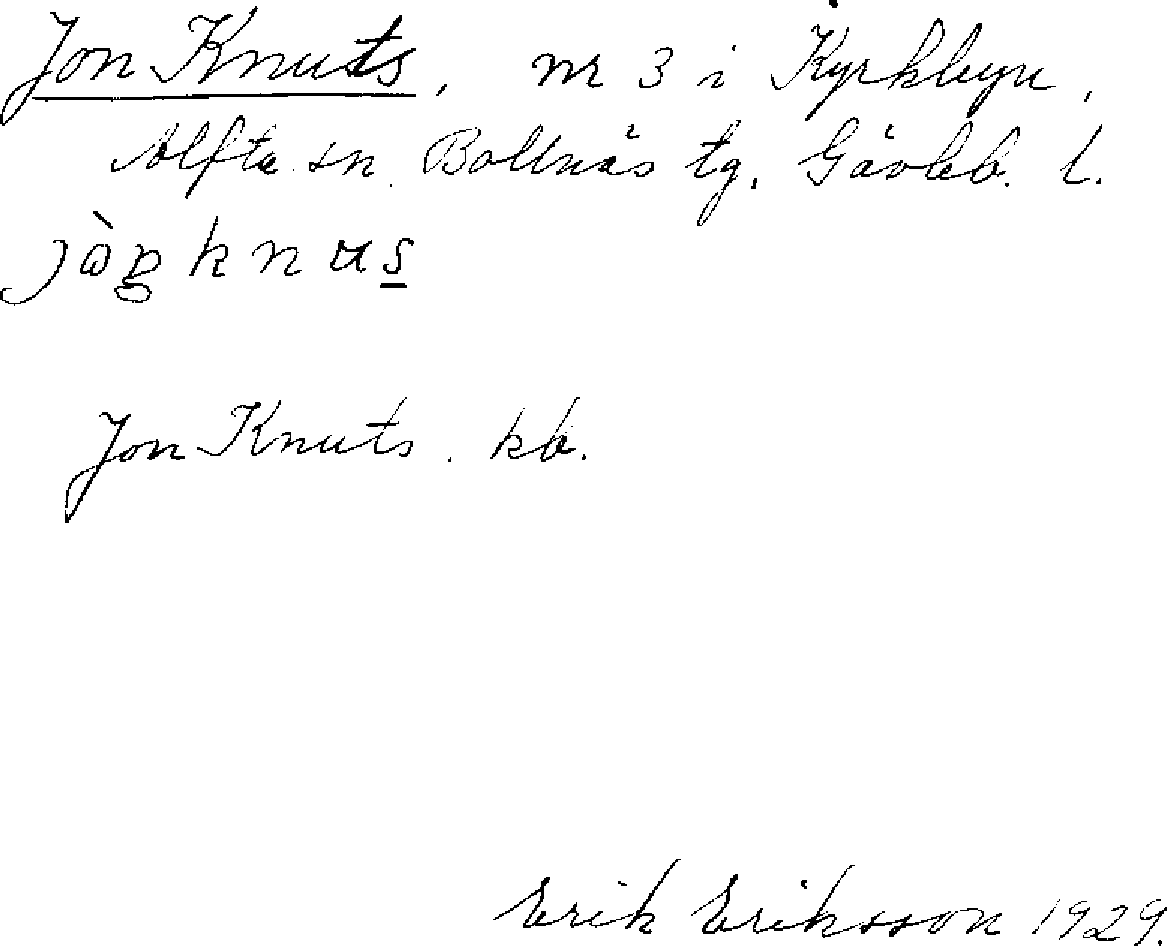 Jon Knuts, nr 3 i Kyrkbyn,
Alfta sn. Bollnäs tg. Gävleb. l.
jòn knus
Jon Knuts. kb.
Erik Eriksson 1929.